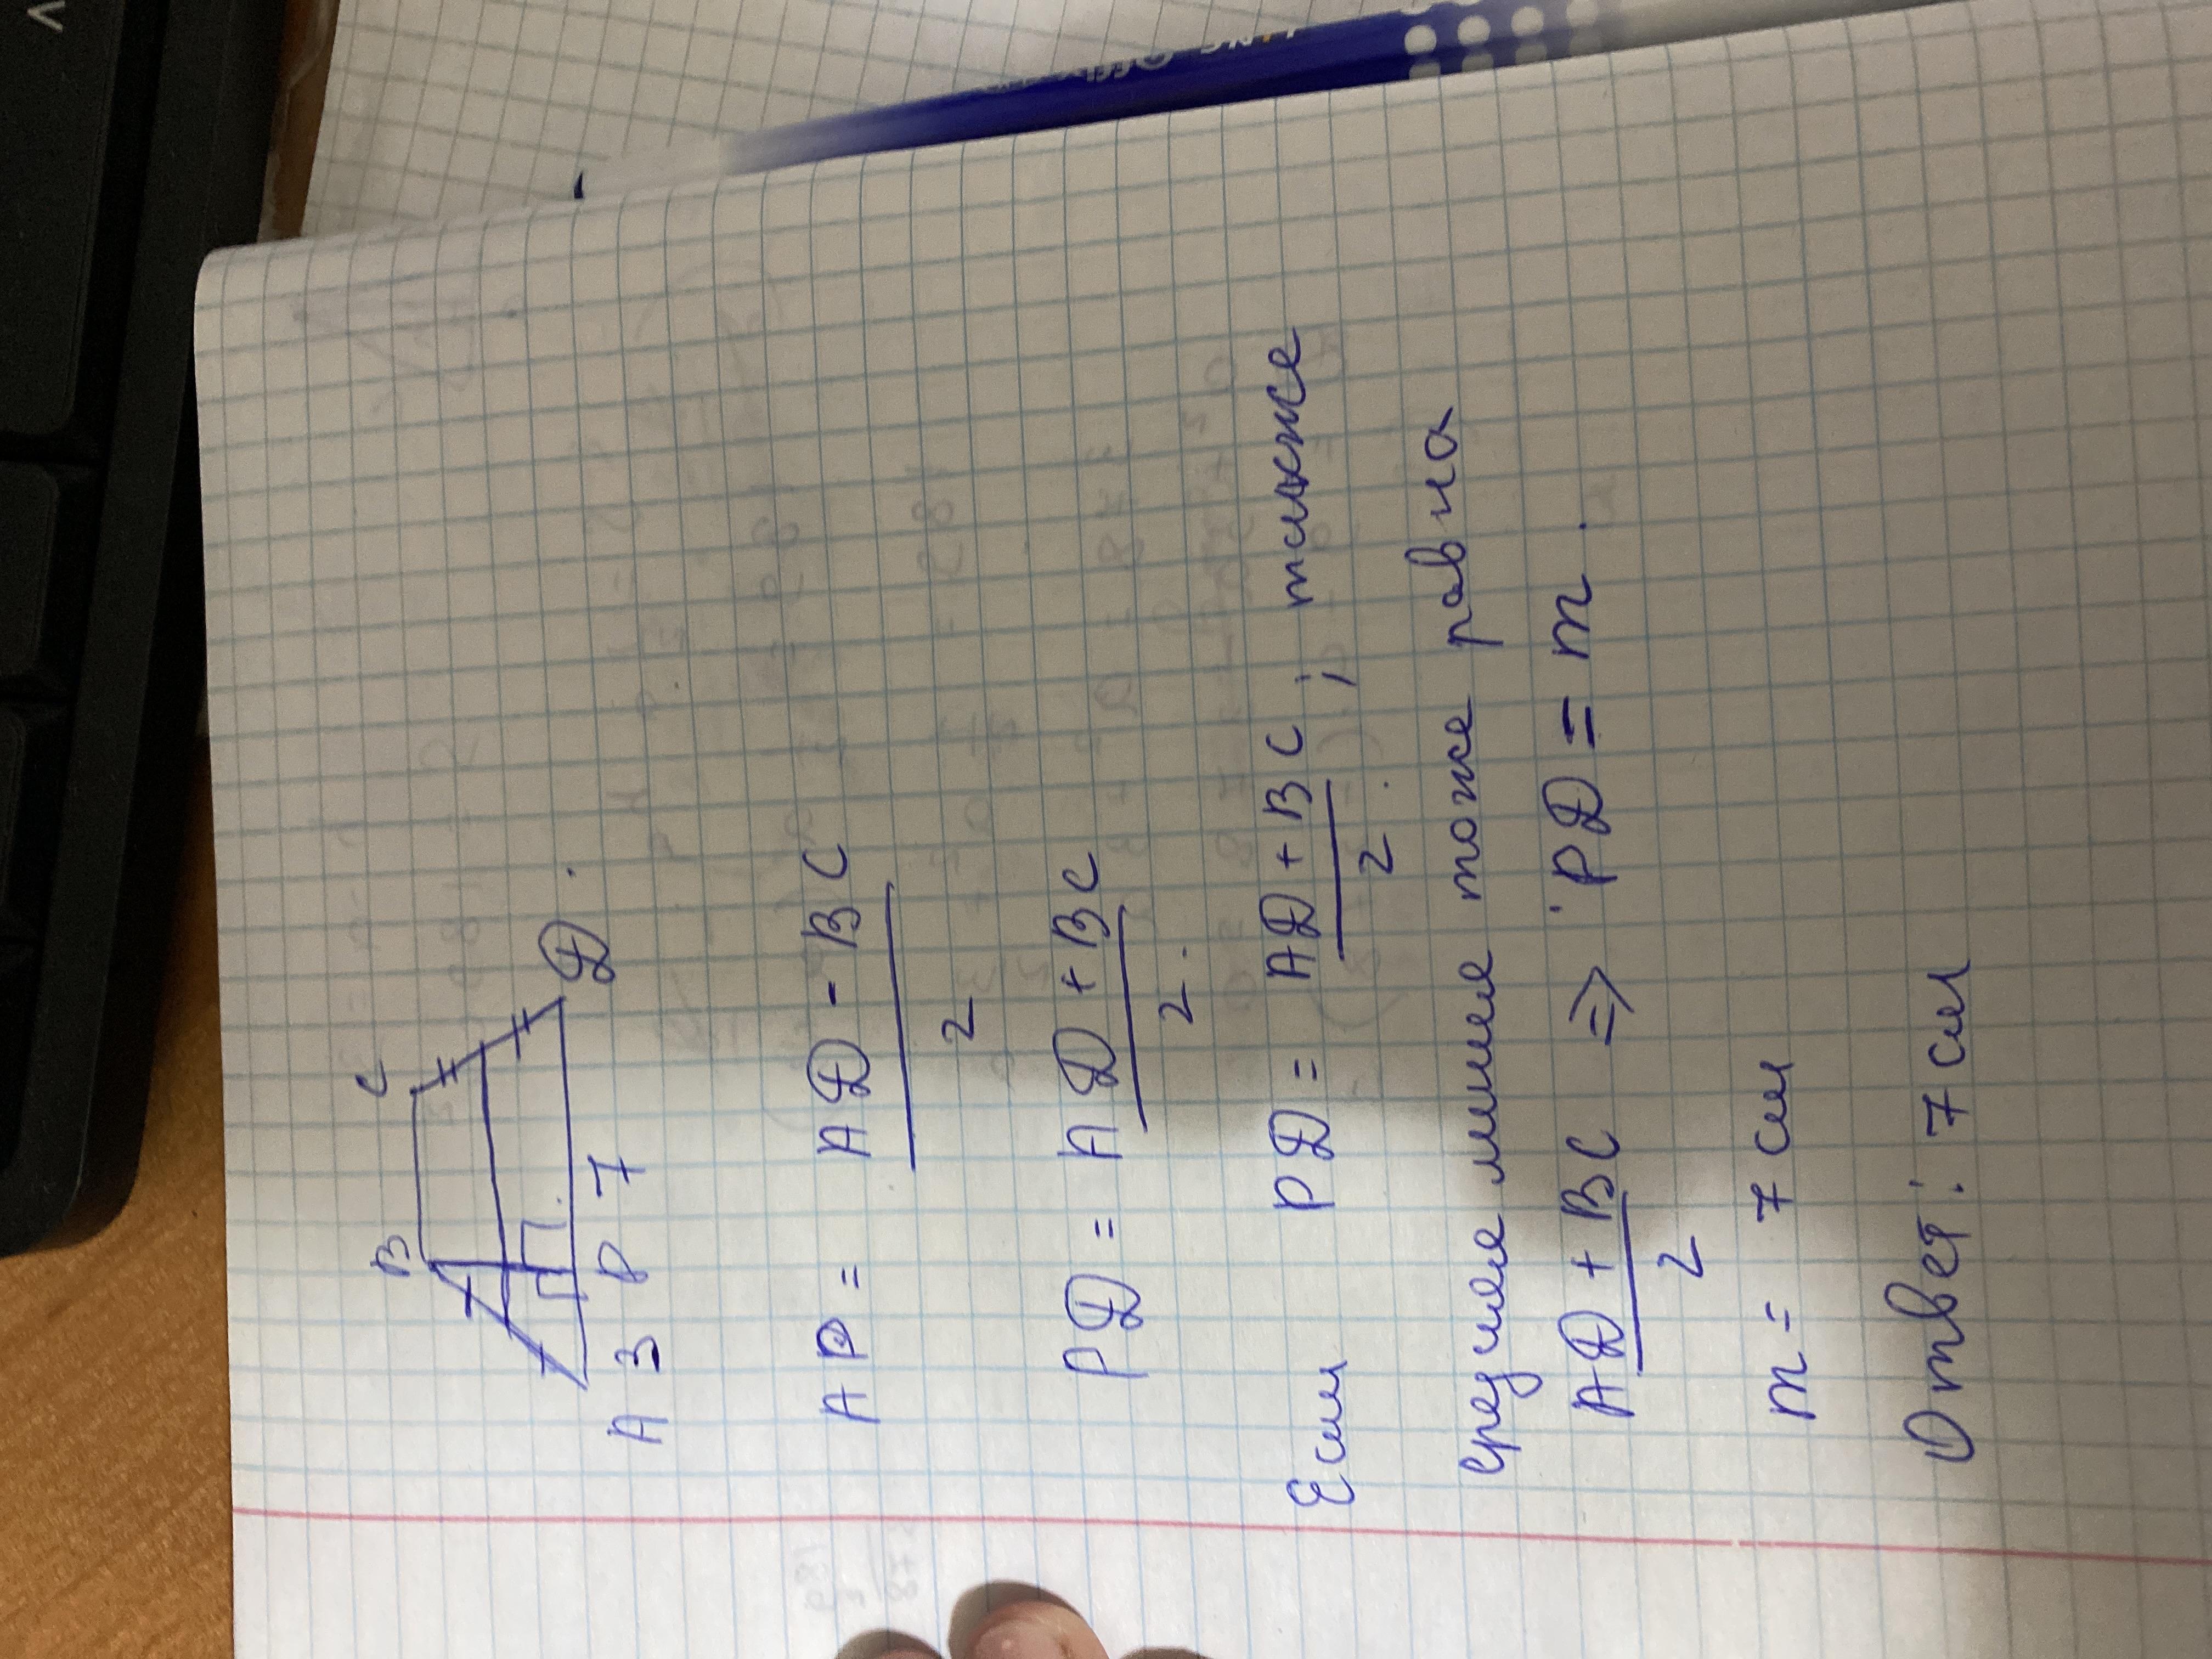 B C
A 3 P 7 D.
AP = AD - BC
2
PD = AD + BC
2.
Если PD = AD + BC; также
2.
средняя линия тоже равна
AD + BC => PD = m.
2
m = 7 см
Ответ: 7 см